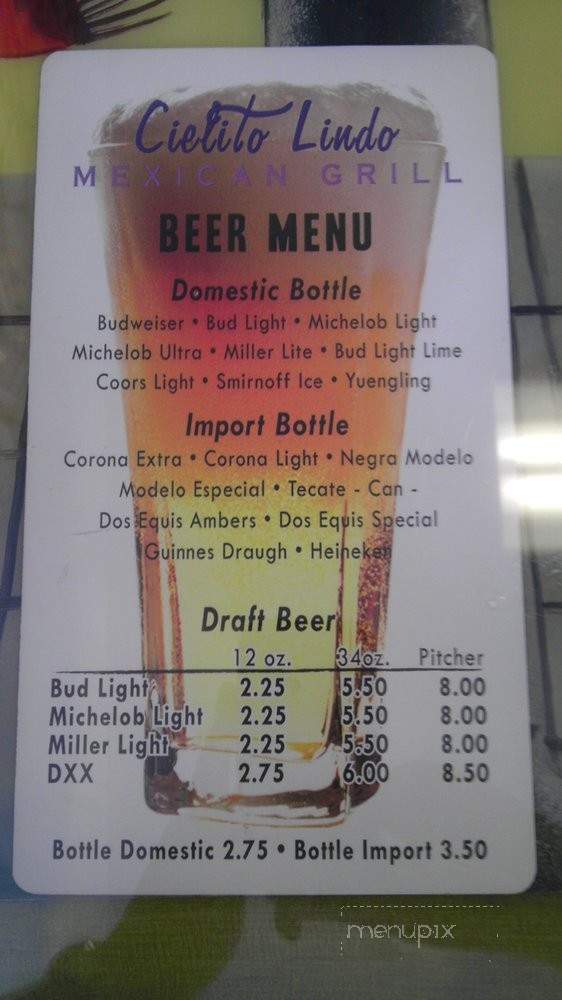 Cielito Lindo
MEXICAN GRILL
BEER MENU
Domestic Bottle
Budweiser • Bud Light • Michelob Light
Michelob Ultra • Miller Lite • Bud Light Lime
Coors Light • Smirnoff Ice • Yuengling
Import Bottle
Corona Extra • Corona Light • Negra Modelo
Modelo Especial • Tecate - Can -
Dos Equis Ambers • Dos Equis Special
Guinnes Draugh • Heineken
Draft Beer
12 oz. 34oz. Pitcher
Bud Light 2.25 5.50 8.00
Michelob Light 2.25 5.50 8.00
Miller Light 2.25 5.50 8.00
DXX 2.75 6.00 8.50
Bottle Domestic 2.75 • Bottle Import 3.50
menupix